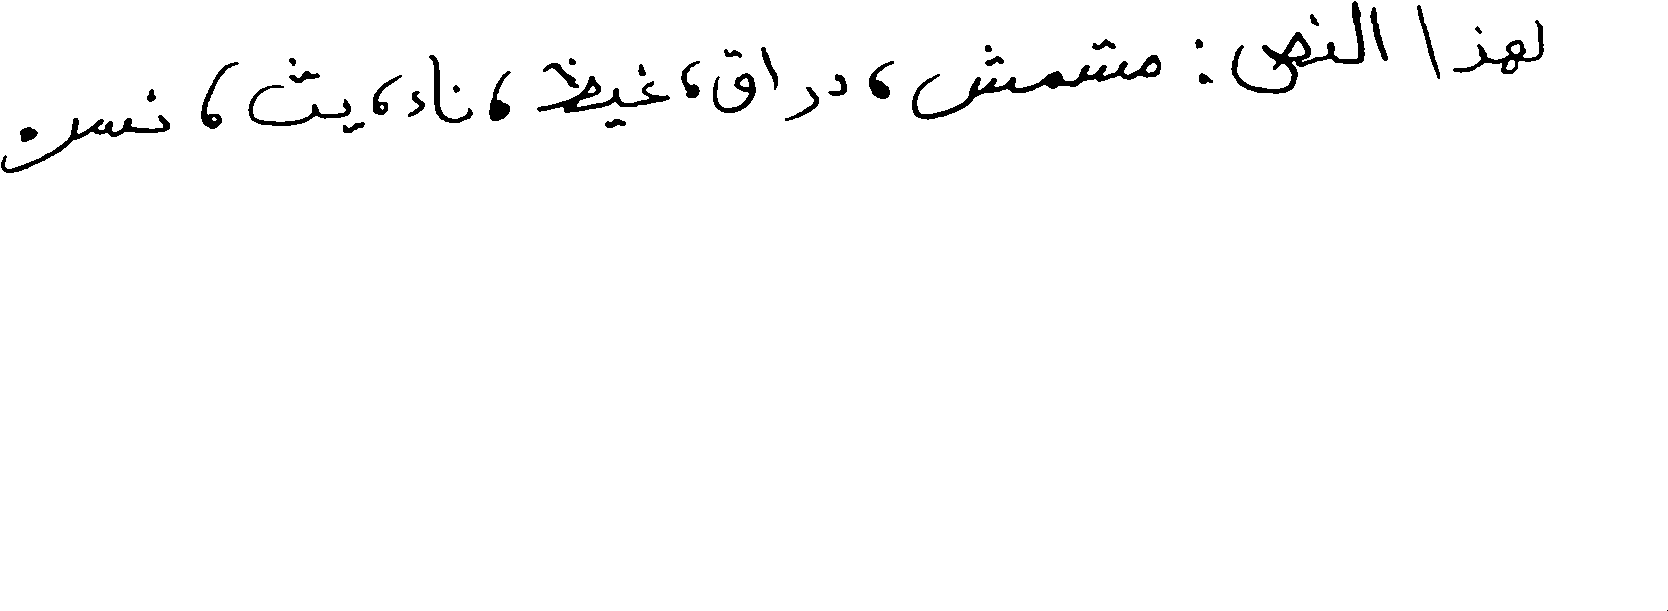 لهذا النص: مشمش، دراق، غيظ، ناء، يث، نس.